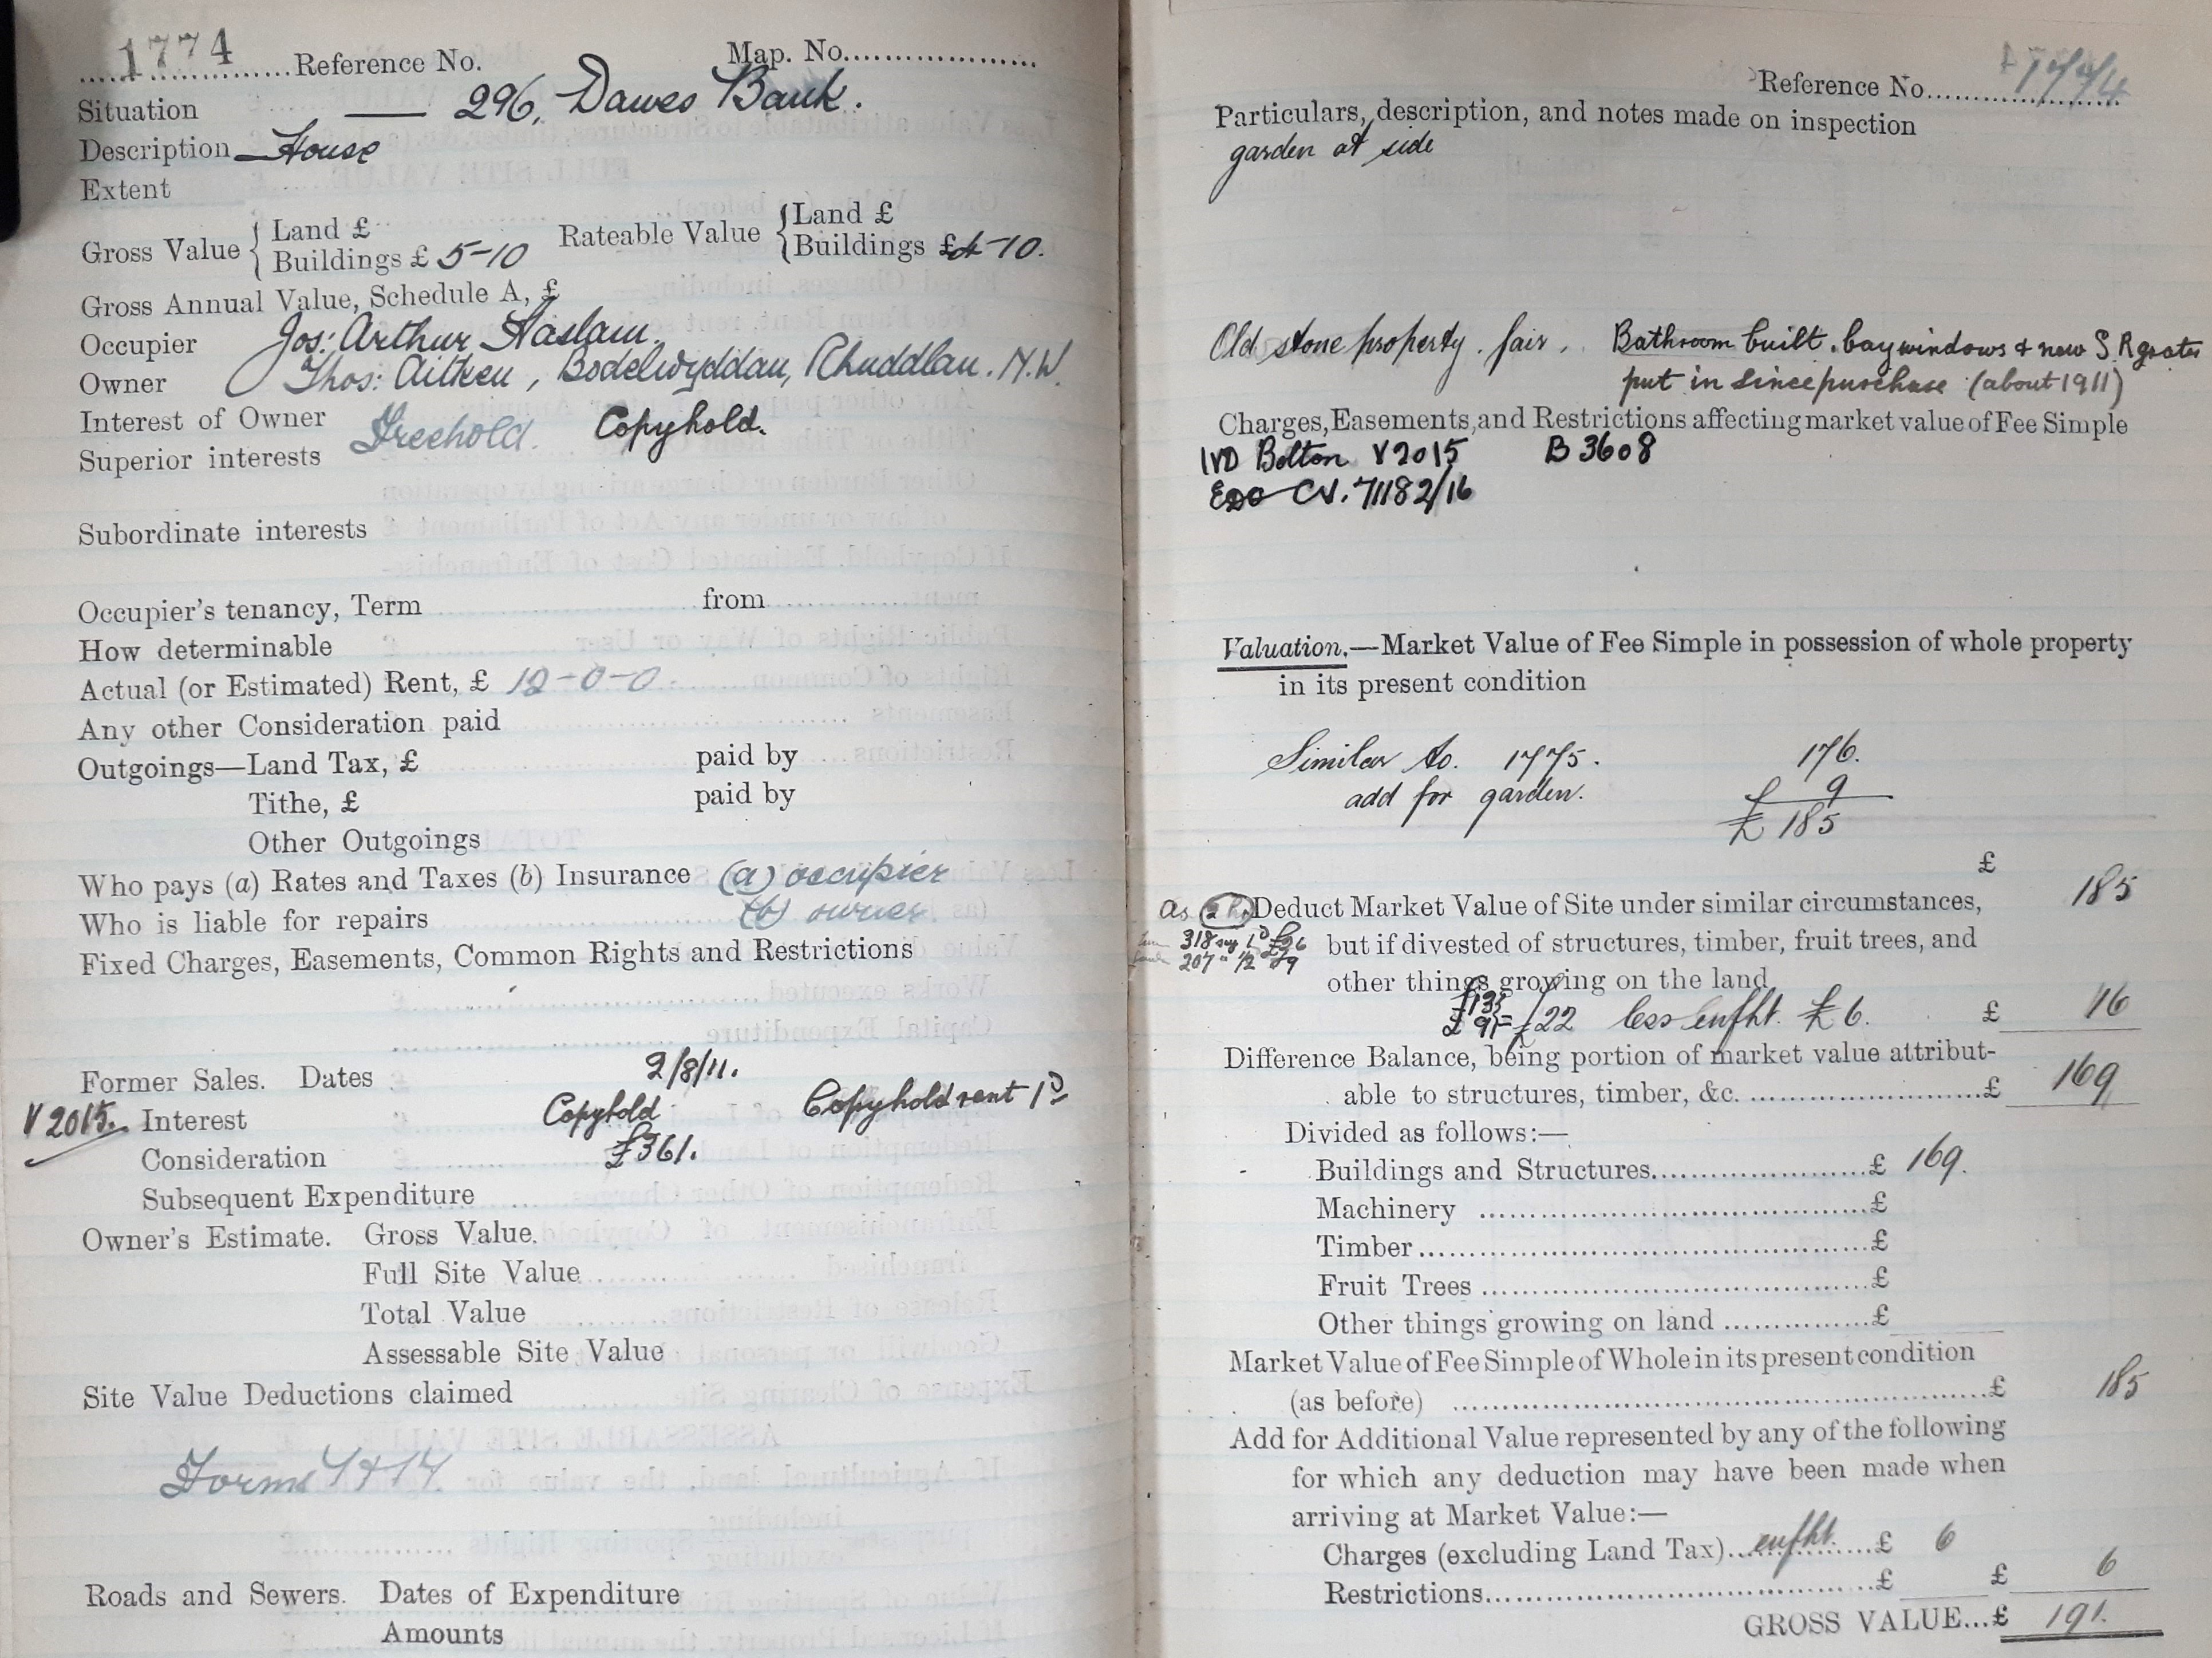 1774 Reference No. Map. No.
Situation — 296, Dawes Bank.
Description House
Extent
Gross Value { Land £ Rateable Value { Land £
Buildings £ 5-10 Buildings £4-10.
Gross Annual Value, Schedule A, £
Occupier Jos: Arthur Haslam.
Owner Thos: Aitken, Bodelwyddan, Rhuddlan. N.W.
Interest of Owner Freehold. Copyhold.
Superior interests
Subordinate interests
Occupier's tenancy, Term from
How determinable
Actual (or Estimated) Rent, £ 12-0-0.
Any other Consideration paid
Outgoings—Land Tax, £ paid by
Tithe, £ paid by
Other Outgoings
Who pays (a) Rates and Taxes (b) Insurance (a) occupier
Who is liable for repairs (b) owner.
Fixed Charges, Easements, Common Rights and Restrictions
Former Sales. Dates 2/8/11.
V2015. Interest Copyhold Copyhold rent 1D
Consideration £361.
Subsequent Expenditure
Owner's Estimate. Gross Value.
Full Site Value
Total Value
Assessable Site Value
Site Value Deductions claimed
Forms 4+14
Roads and Sewers. Dates of Expenditure
Amounts
Reference No. 1774
Particulars, description, and notes made on inspection
garden at side
Old stone property. fair. Bathroom built. bay windows & new S.R grates
put in since purchase (about 1911)
Charges, Easements, and Restrictions affecting market value of Fee Simple
IVD Bolton V2015 B3608
CV. 71182/16
Valuation.—Market Value of Fee Simple in possession of whole property
in its present condition
Similar to. 1775. 176.
add for garden. 9
£ 185
£
as Deduct Market Value of Site under similar circumstances, 185
318 1D £26 but if divested of structures, timber, fruit trees, and
207 " ½ £9 other things growing on the land
£13
£ 9 = £22 less enfht. £6. £ 16
Difference Balance, being portion of market value attribut-
able to structures, timber, &c. £ 169
Divided as follows:—
Buildings and Structures £ 169.
Machinery £
Timber £
Fruit Trees £
Other things growing on land £
Market Value of Fee Simple of Whole in its present condition
(as before) £ 185
Add for Additional Value represented by any of the following
for which any deduction may have been made when
arriving at Market Value:—
Charges (excluding Land Tax) enfht. £ 6
Restrictions £ £ 6
GROSS VALUE...£ 191.